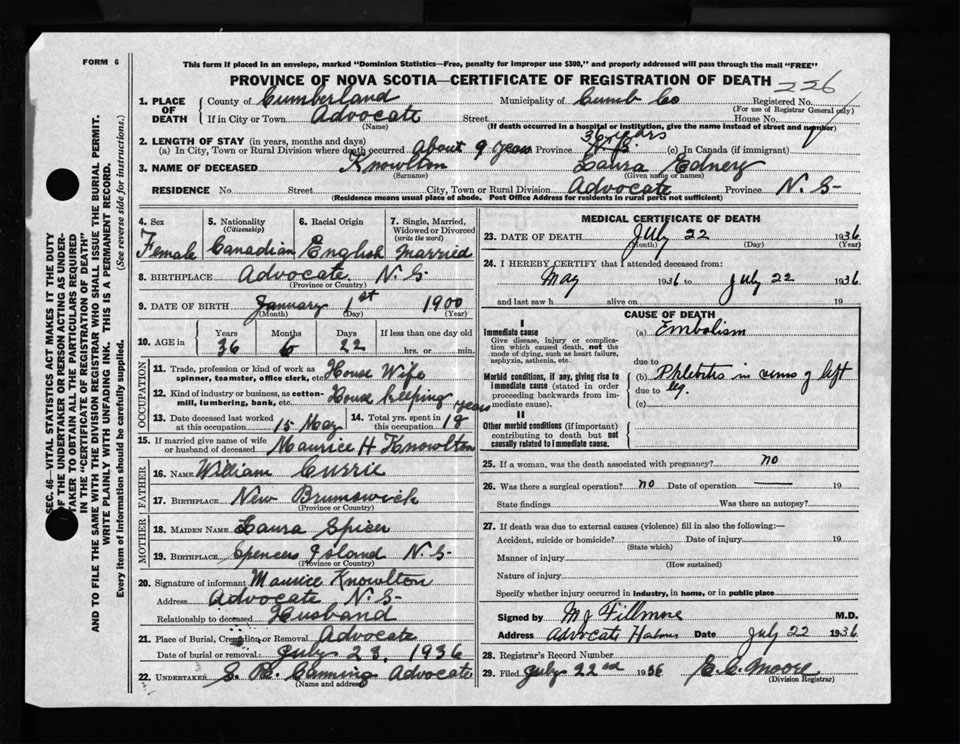 FORM 6
This form if placed in an envelope, marked "Dominion Statistics—Free, penalty for improper use $300," and properly addressed will pass through the mail "FREE"
PROVINCE OF NOVA SCOTIA—CERTIFICATE OF REGISTRATION OF DEATH
226
1. PLACE OF DEATH
County of Cumberland Municipality of Cumb Co Registered No.
(For use of Registrar General only)
If in City or Town Advocate Street House No.
(Name) (If death occurred in a hospital or institution, give the name instead of street and number)
2. LENGTH OF STAY (in years, months and days) 36 years
(a) In City, Town or Rural Division where death occurred about 9 years Province N.S. (c) In Canada (if immigrant)
3. NAME OF DECEASED Knowlton Laura
(Surname) (Given name or names)
RESIDENCE No. Street City, Town or Rural Division Advocate Province N. S-
(Residence means usual place of abode. Post Office Address for residents in rural parts not sufficient)
4. Sex 5. Nationality (Citizenship) 6. Racial Origin 7. Single, Married, Widowed or Divorced (write the word)
Female Canadian English Married
8. BIRTHPLACE Advocate N. S
(Province or Country)
9. DATE OF BIRTH January 1st 1900
(Month) (Day) (Year)
10. AGE in Years Months Days If less than one day old
36 6 22 hrs. or min.
OCCUPATION
11. Trade, profession or kind of work as spinner, teamster, office clerk, etc. House Wife
12. Kind of industry or business, as cotton-mill, lumbering, bank, etc. House Keeping
13. Date deceased last worked at this occupation 15 May 14. Total yrs. spent in this occupation 18 years
15. If married give name of wife or husband of deceased Maurice H Knowlton
FATHER
16. NAME William Currie
17. BIRTHPLACE New Brunswick
(Province or Country)
MOTHER
18. MAIDEN NAME Laura Spicer
19. BIRTHPLACE Spencers Island N. S-
(Province or Country)
20. Signature of informant Maurice Knowlton
Address Advocate N. S-
Relationship to deceased Husband
21. Place of Burial, Cremation or Removal Advocate
Date of burial or removal July 23, 1936
22. UNDERTAKER Advocate
(Name and address)
MEDICAL CERTIFICATE OF DEATH
23. DATE OF DEATH July 22 1936
(Month) (Day) (Year)
24. I HEREBY CERTIFY that I attended deceased from:
May 1936 to July 22 1936
and last saw h alive on 19
CAUSE OF DEATH
I
Immediate cause
Give disease, injury or complication which caused death, not the mode of dying, such as heart failure, asphyxia, asthenia, etc.
(a) Embolism
due to
Morbid conditions, if any, giving rise to immediate cause (stated in order proceeding backwards from immediate cause).
(b) Phlebitis in veins of left
due to leg.
(c)
II
Other morbid conditions (if important) contributing to death but not causally related to immediate cause.
25. If a woman, was the death associated with pregnancy? no
26. Was there a surgical operation? no Date of operation 19
State findings Was there an autopsy?
27. If death was due to external causes (violence) fill in also the following:—
Accident, suicide or homicide? Date of injury 19
(State which)
Manner of injury
(How sustained)
Nature of injury
Specify whether injury occurred in industry, in home, or in public place
Signed by M J Fillmore M.D.
Address Advocate Harbour Date July 22 1936
28. Registrar's Record Number
29. Filed July 22nd 1936 E. C. Moore
(Division Registrar)
SEC. 46—VITAL STATISTICS ACT MAKES IT THE DUTY
OF THE UNDERTAKER OR PERSON ACTING AS UNDER-
TAKER TO OBTAIN ALL THE PARTICULARS REQUIRED
IN THE "CERTIFICATE OF REGISTRATION OF DEATH"
AND TO FILE THE SAME WITH THE DIVISION REGISTRAR WHO SHALL ISSUE THE BURIAL PERMIT.
WRITE PLAINLY WITH UNFADING INK. THIS IS A PERMANENT RECORD.
Every item of information should be carefully supplied. (See reverse side for instructions.)